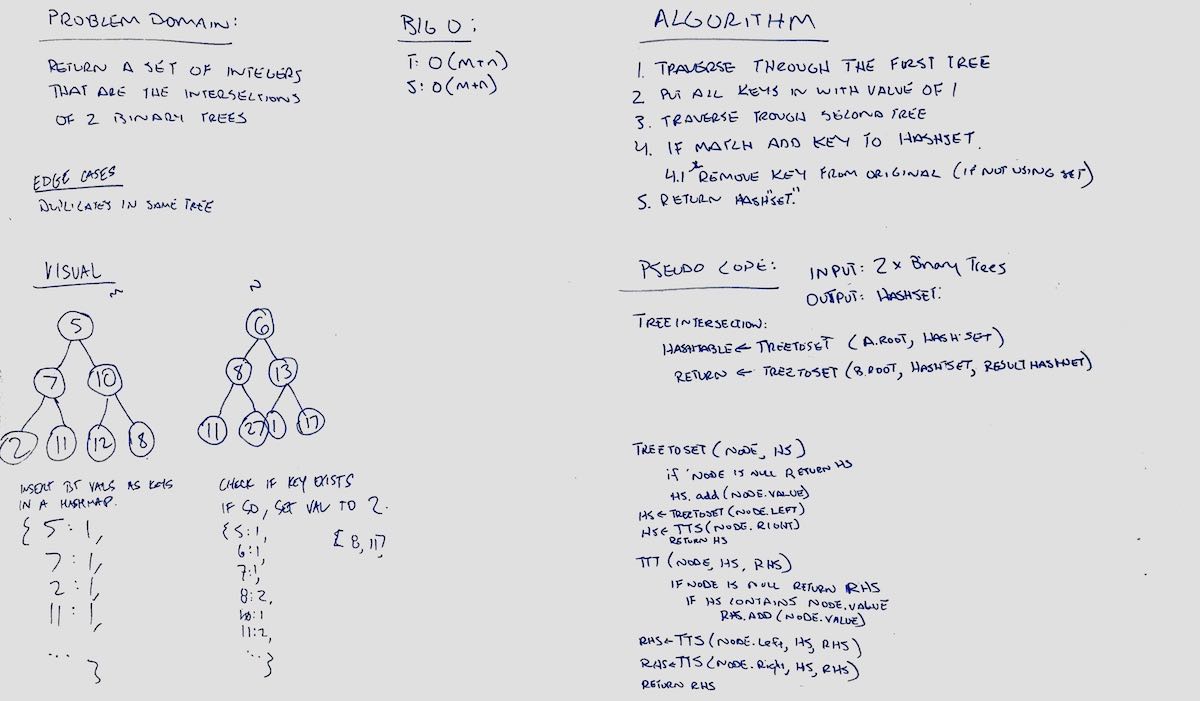 PROBLEM DOMAIN:
RETURN A SET OF INTEGERS
THAT ARE THE INTERSECTIONS
OF 2 BINARY TREES
EDGE CASES
DUPLICATES IN SAME TREE
BIG O:
T: O(M+n)
S: O(M+n)
VISUAL
M
5
7 10
2 11 12 8
N
6
8 13
11 27 1 17
INSERT BT VALS AS KEYS
IN A HASHMAP.
{ 5:1,
7:1,
2:1,
11:1,
...
}
CHECK IF KEY EXISTS
IF SO, SET VAL TO 2.
{5:1,
6:1,
7:1,
8:2,
10:1
11:2,
...}
[8, 11]
ALGORITHM
1. TRAVERSE THROUGH THE FIRST TREE
2 PUT ALL KEYS IN WITH VALUE OF 1
3. TRAVERSE TROUGH SECOND TREE
4. IF MATCH ADD KEY TO HASHSET.
4.1 * REMOVE KEY FROM ORIGINAL (IF NOT USING SET)
5. RETURN HASH"SET."
PSEUDO CODE:
INPUT: 2 x Binary Trees
OUTPUT: HASHSET.
TREEINTERSECTION:
HASHTABLE ← TREETOSET (A.ROOT, HASHSET)
RETURN ← TREE2TOSET (B.ROOT, HASHSET, RESULTHASHSET)
TREETOSET (NODE, HS)
if NODE IS NULL RETURN HS
HS.add (NODE.VALUE)
HS ← TREETOSET (NODE.LEFT)
HS ← TTS (NODE.RIGHT)
RETURN HS
TTT (NODE, HS, RHS)
IF NODE IS NULL RETURN RHS
IF HS CONTAINS NODE.VALUE
RHS.ADD (NODE.VALUE)
RHS ← TTS (NODE.Left, HS, RHS)
RHS ← TTS (NODE.Right, HS, RHS)
RETURN RHS